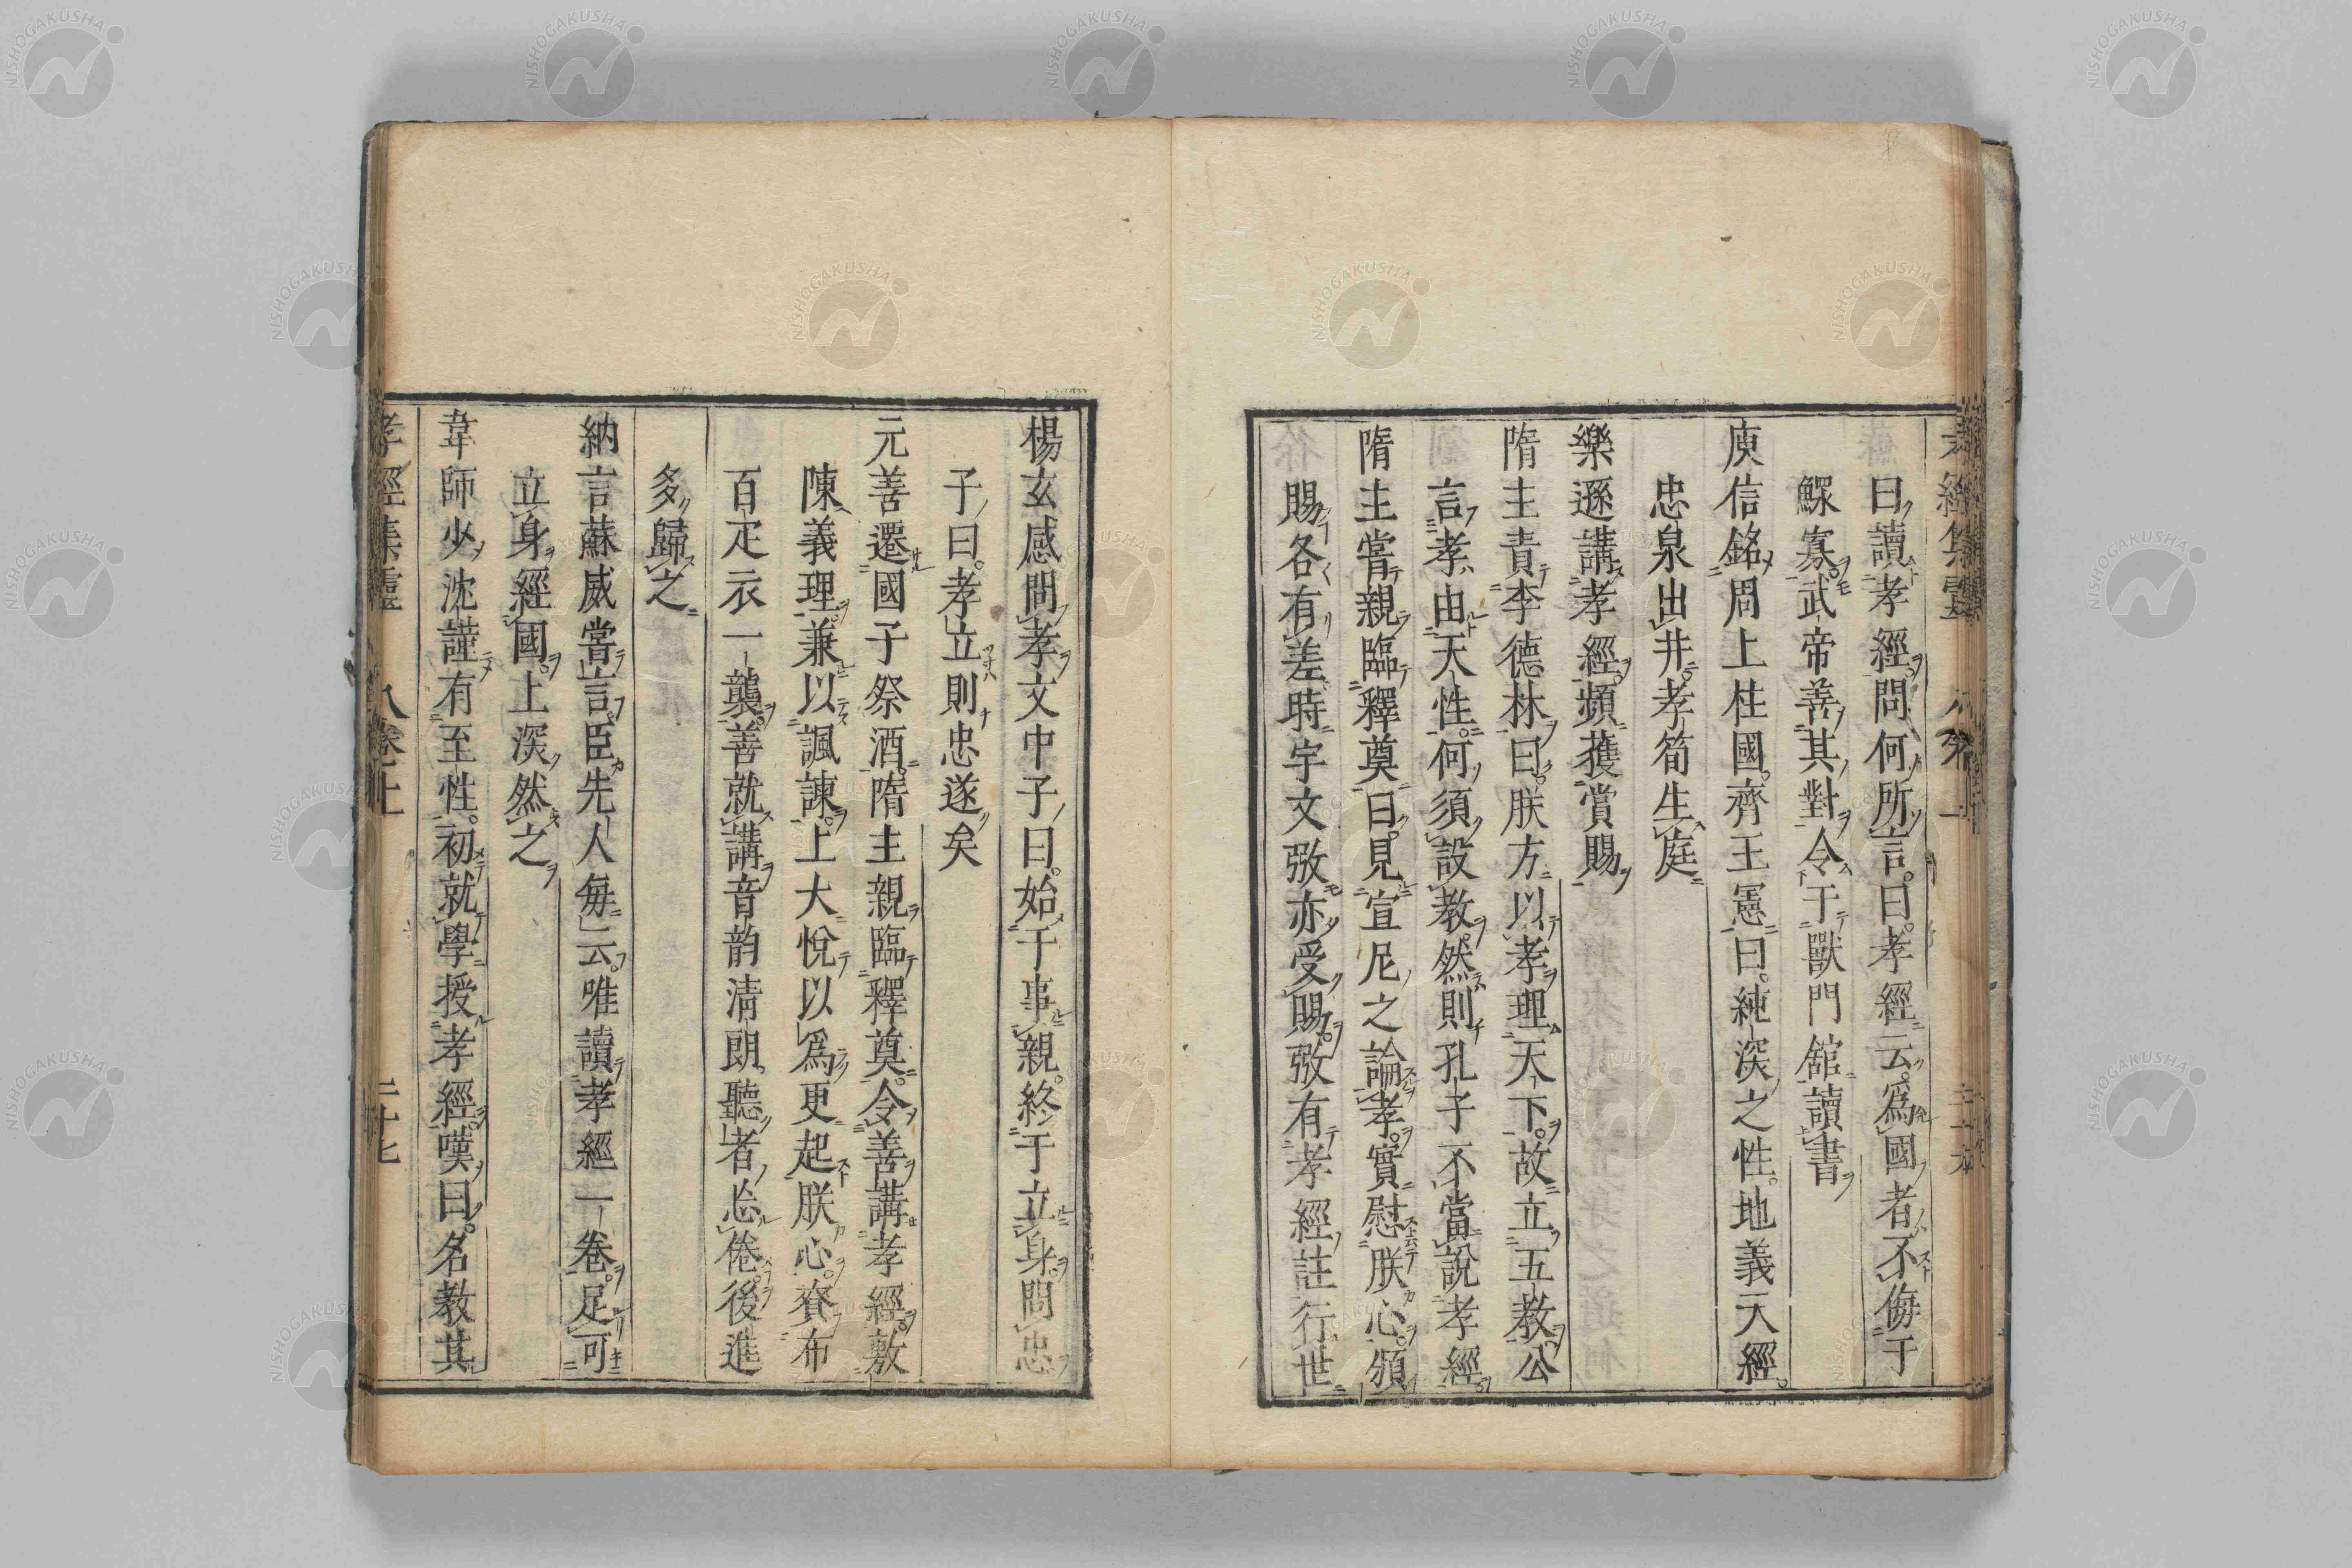 曰讀孝經問何所言曰。孝經云。為國者不侮于
鰥寡。武帝善其對令于獸門舘讀書
庾信銘周上柱國。齊王憲曰。純深之性。地義天經。
忠泉出井孝筍生庭
樂遜講孝經頻獲賞賜
隋主責李德林曰。朕方以孝理天下。故立五教公
言孝由天性。何須設教。然則孔子不當說孝經
隋主嘗親臨釋奠曰。見宣尼之論孝。實慰朕心。頒
賜各有差時宇文㢸亦受賜。㢸有孝經註行世
楊玄感問孝文中子曰。始于事親。終于立身。問忠
子曰。孝立則忠遂矣
元善遷國子祭酒。隋主親臨釋奠。令善講孝經。敷
陳義理。兼以諷諫。上大悅以為更起朕心。賚布
百疋衣一襲。善就講音韵清朗。聽者忘倦。後進
多歸之
納言蘇威嘗言。臣先人每云。唯讀孝經一卷。足可
立身經國。上深然之
韋師少沈謹有至性。初就學授孝經。嘆曰。名教其
孝經集靈 卷上 二十七